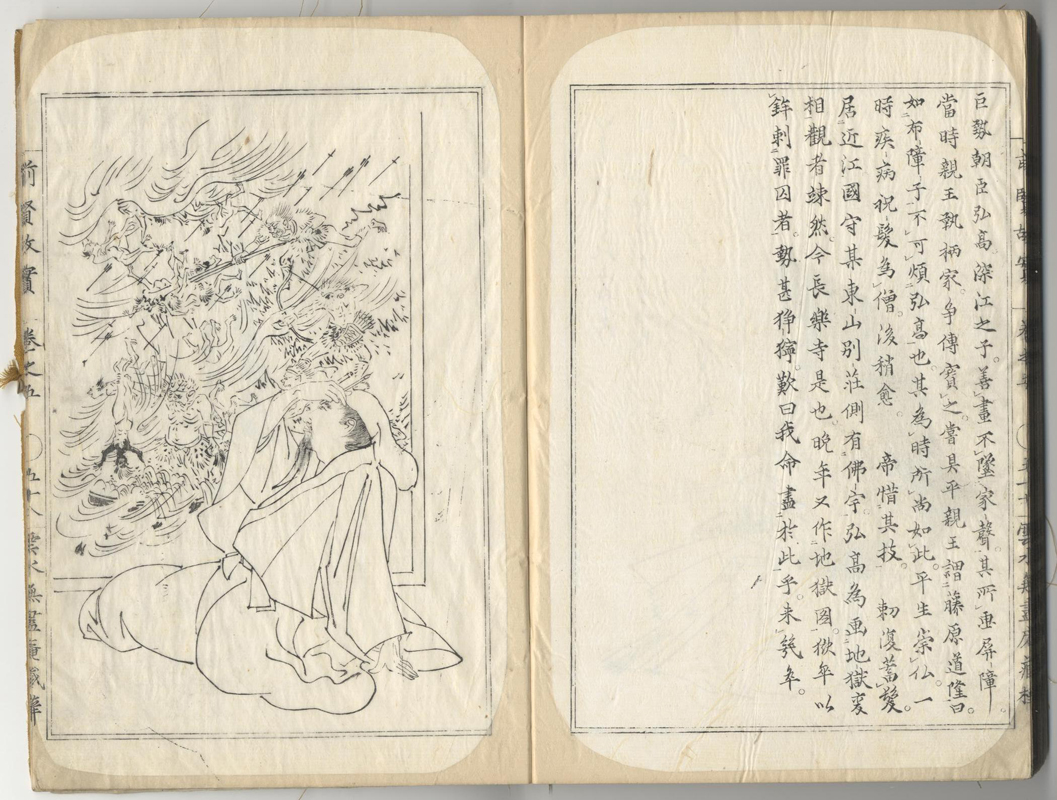 巨勢朝臣弘高。深江之子。善畫不墜家聲。其所畫屏障
當時親王執柄家爭傳寶之。嘗具平親王謂藤原道隆曰。
如布障子不可煩弘高也。其為時所尚如此。平生崇仏。一
時疾病祝髮為僧。後稍愈。帝惜其技。勅復蓄髮。
居近江國守某東山別莊。側有佛宇。弘高為画地獄変
相。觀者竦然。今長樂寺是也。晚年又作地獄圖。獄卒以
鉾刺罪囚者。勢甚猙獰。歎曰我命盡於此乎。未幾卒。
前賢故實 卷之五 〇五十八 雲水無盡庵藏